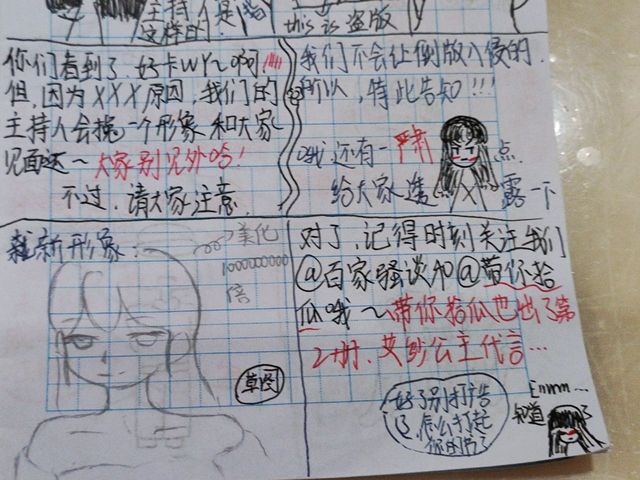 主持人是
这样的
this is 盗版
你们看到了.好卡WY~啊!!!!!
但,因为XXX原因,我们的
主持人会换一个形象和大家
见面哒~大家别见外哈!
不过.请大家注意.
我们不会让倒放入侵的.
所以,特此告知!!!
哦.还有一 严肃 点.
给大家透 露一下
崭新形象:
美化
1000000000
倍
草图
对了.记得时刻关注我们
@百家骚谈和@带你拾
瓜哦~带你拾瓜也出了第
2册.艾纱公主代言...
好了别打广告
了.怎么打起
你的书了
Emmm...
知道了